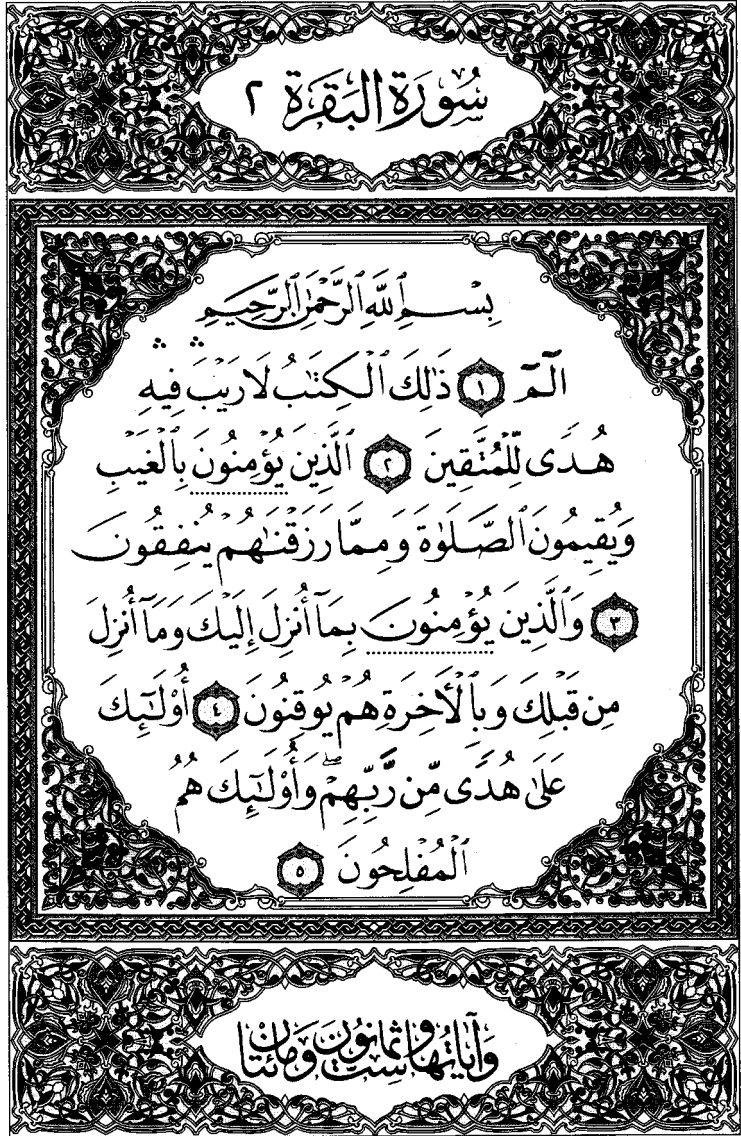 سُورَةُ البَقَرَةِ ٢
بِسۡمِ ٱللَّهِ ٱلرَّحۡمَٰنِ ٱلرَّحِيمِ
الٓمٓ ١ ذَٰلِكَ ٱلۡكِتَٰبُ لَا رَيۡبَۛ فِيهِۛ
هُدٗى لِّلۡمُتَّقِينَ ٢ ٱلَّذِينَ يُؤۡمِنُونَ بِٱلۡغَيۡبِ
وَيُقِيمُونَ ٱلصَّلَوٰةَ وَمِمَّا رَزَقۡنَٰهُمۡ يُنفِقُونَ
٣ وَٱلَّذِينَ يُؤۡمِنُونَ بِمَآ أُنزِلَ إِلَيۡكَ وَمَآ أُنزِلَ
مِن قَبۡلِكَ وَبِٱلۡأٓخِرَةِ هُمۡ يُوقِنُونَ ٤ أُوْلَٰٓئِكَ
عَلَىٰ هُدٗى مِّن رَّبِّهِمۡۖ وَأُوْلَٰٓئِكَ هُمُ
ٱلۡمُفۡلِحُونَ ٥
وَآيَاتُهَا سِتٌّ وَثَمَانُونَ وَمِائَتَانِ